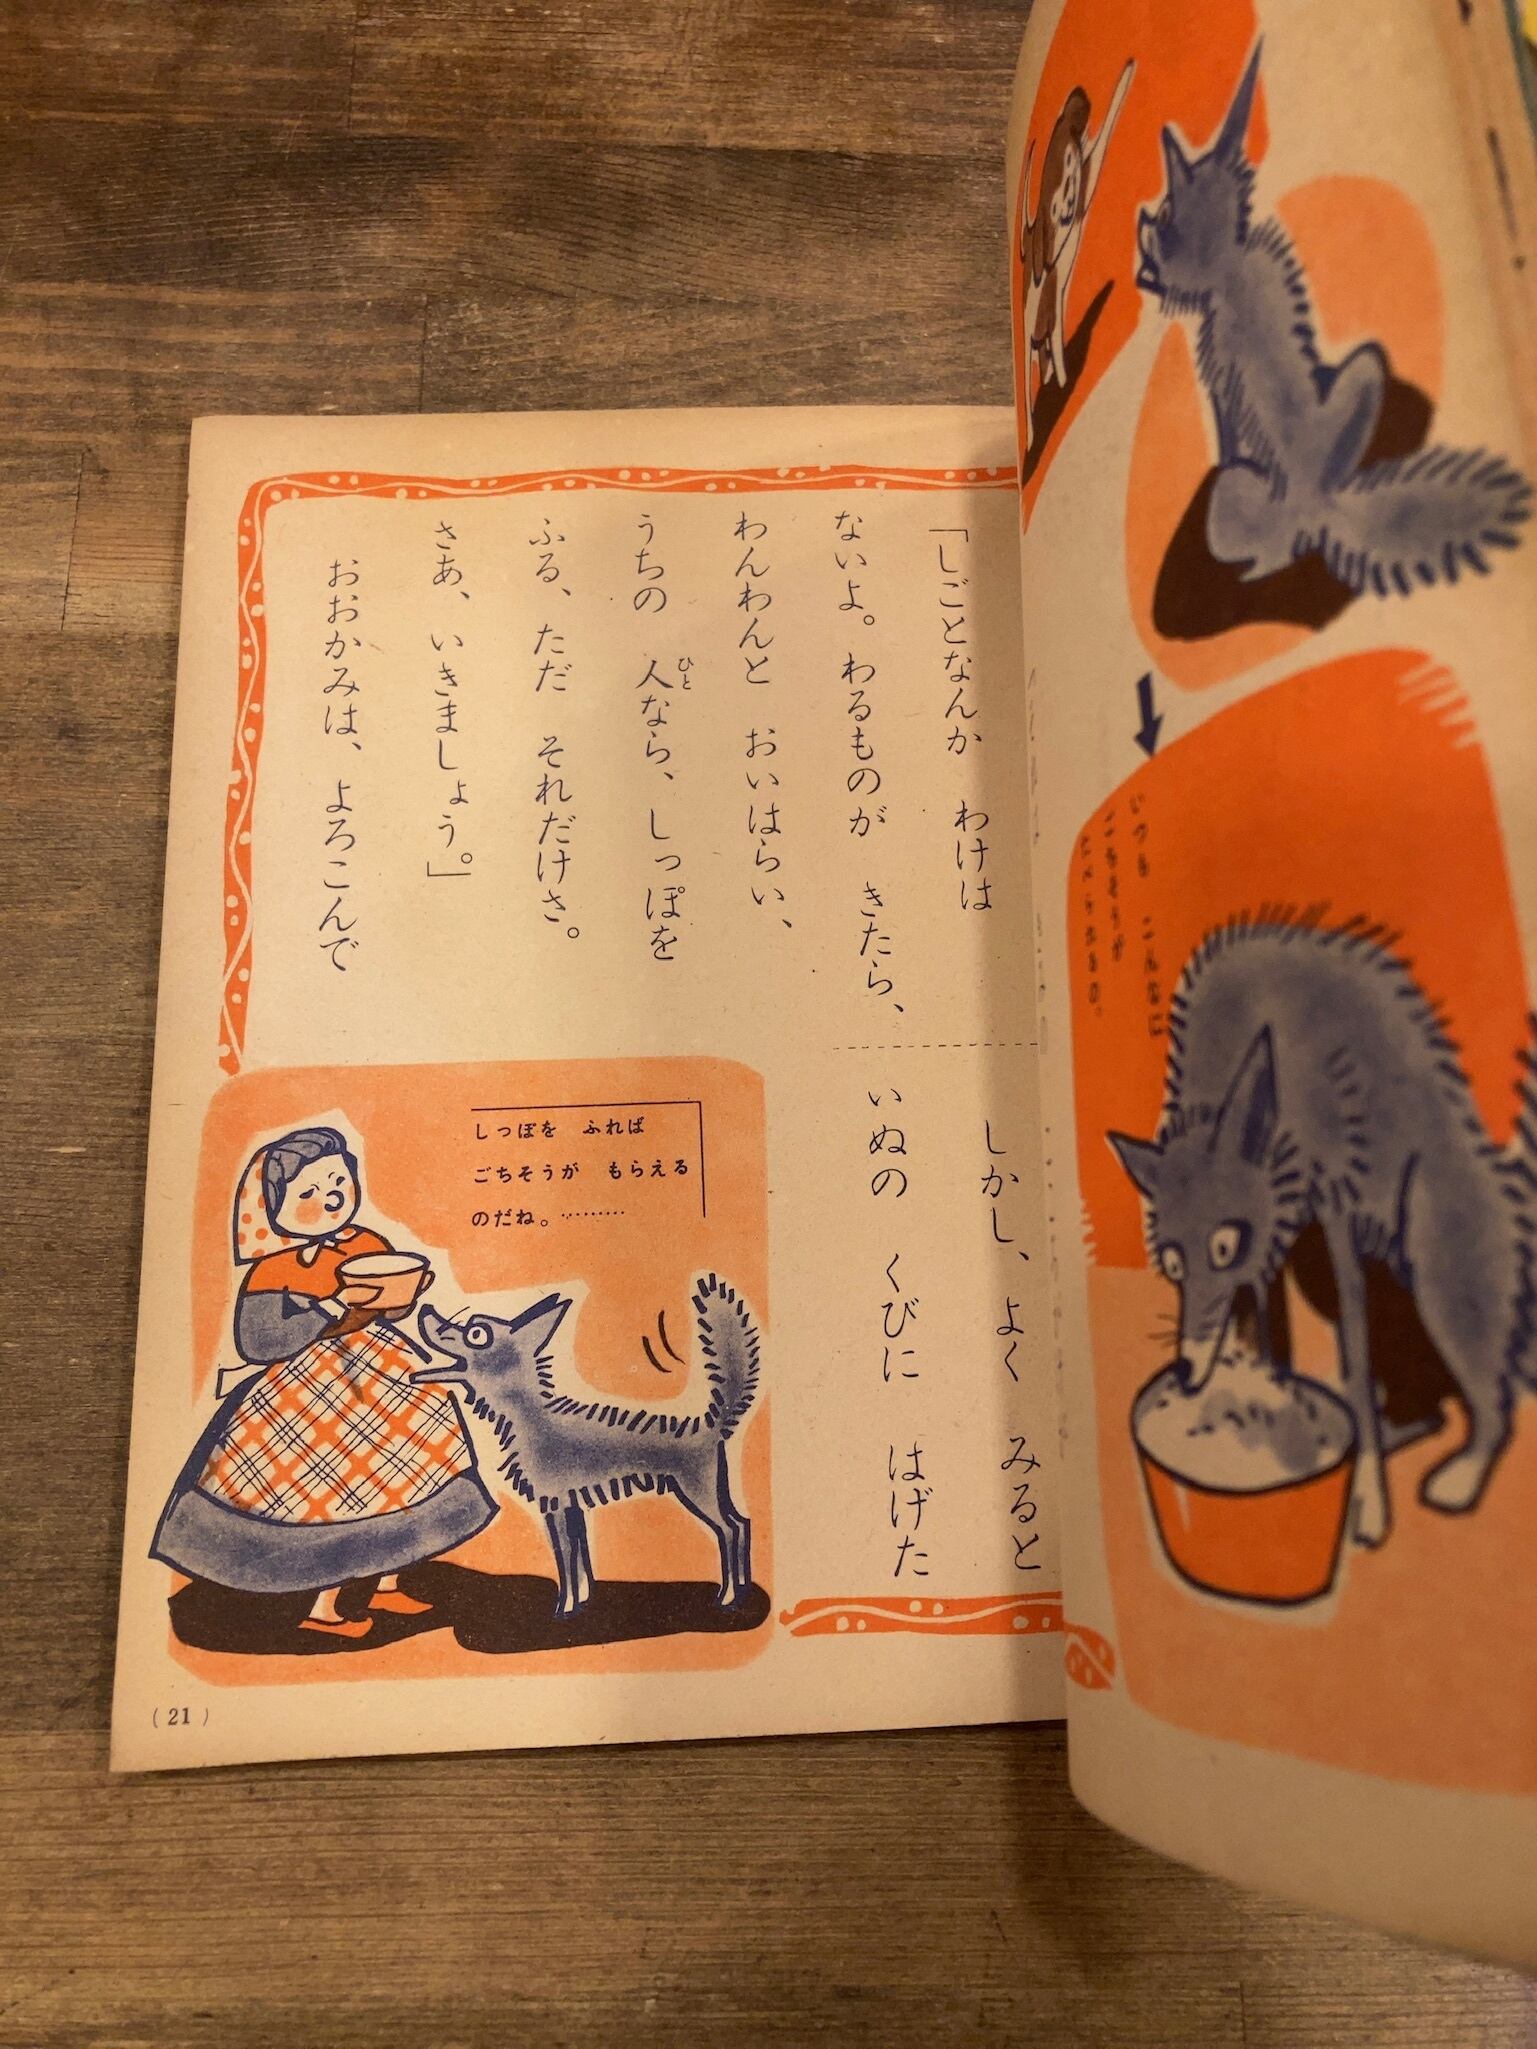 いつも　こんなに
ごちそうが
たべられるの。
「しごとなんか　わけは
ないよ。わるものが　きたら、
わんわんと　おいはらい、
うちの　人なら、しっぽを
ひと
ふる、ただ　それだけさ。
さあ、いきましょう。」
おおかみは、よろこんで
しかし、よく　みると
いぬの　くびに　はげた
しっぽを　ふれば
ごちそうが　もらえる
のだね。………
(21)